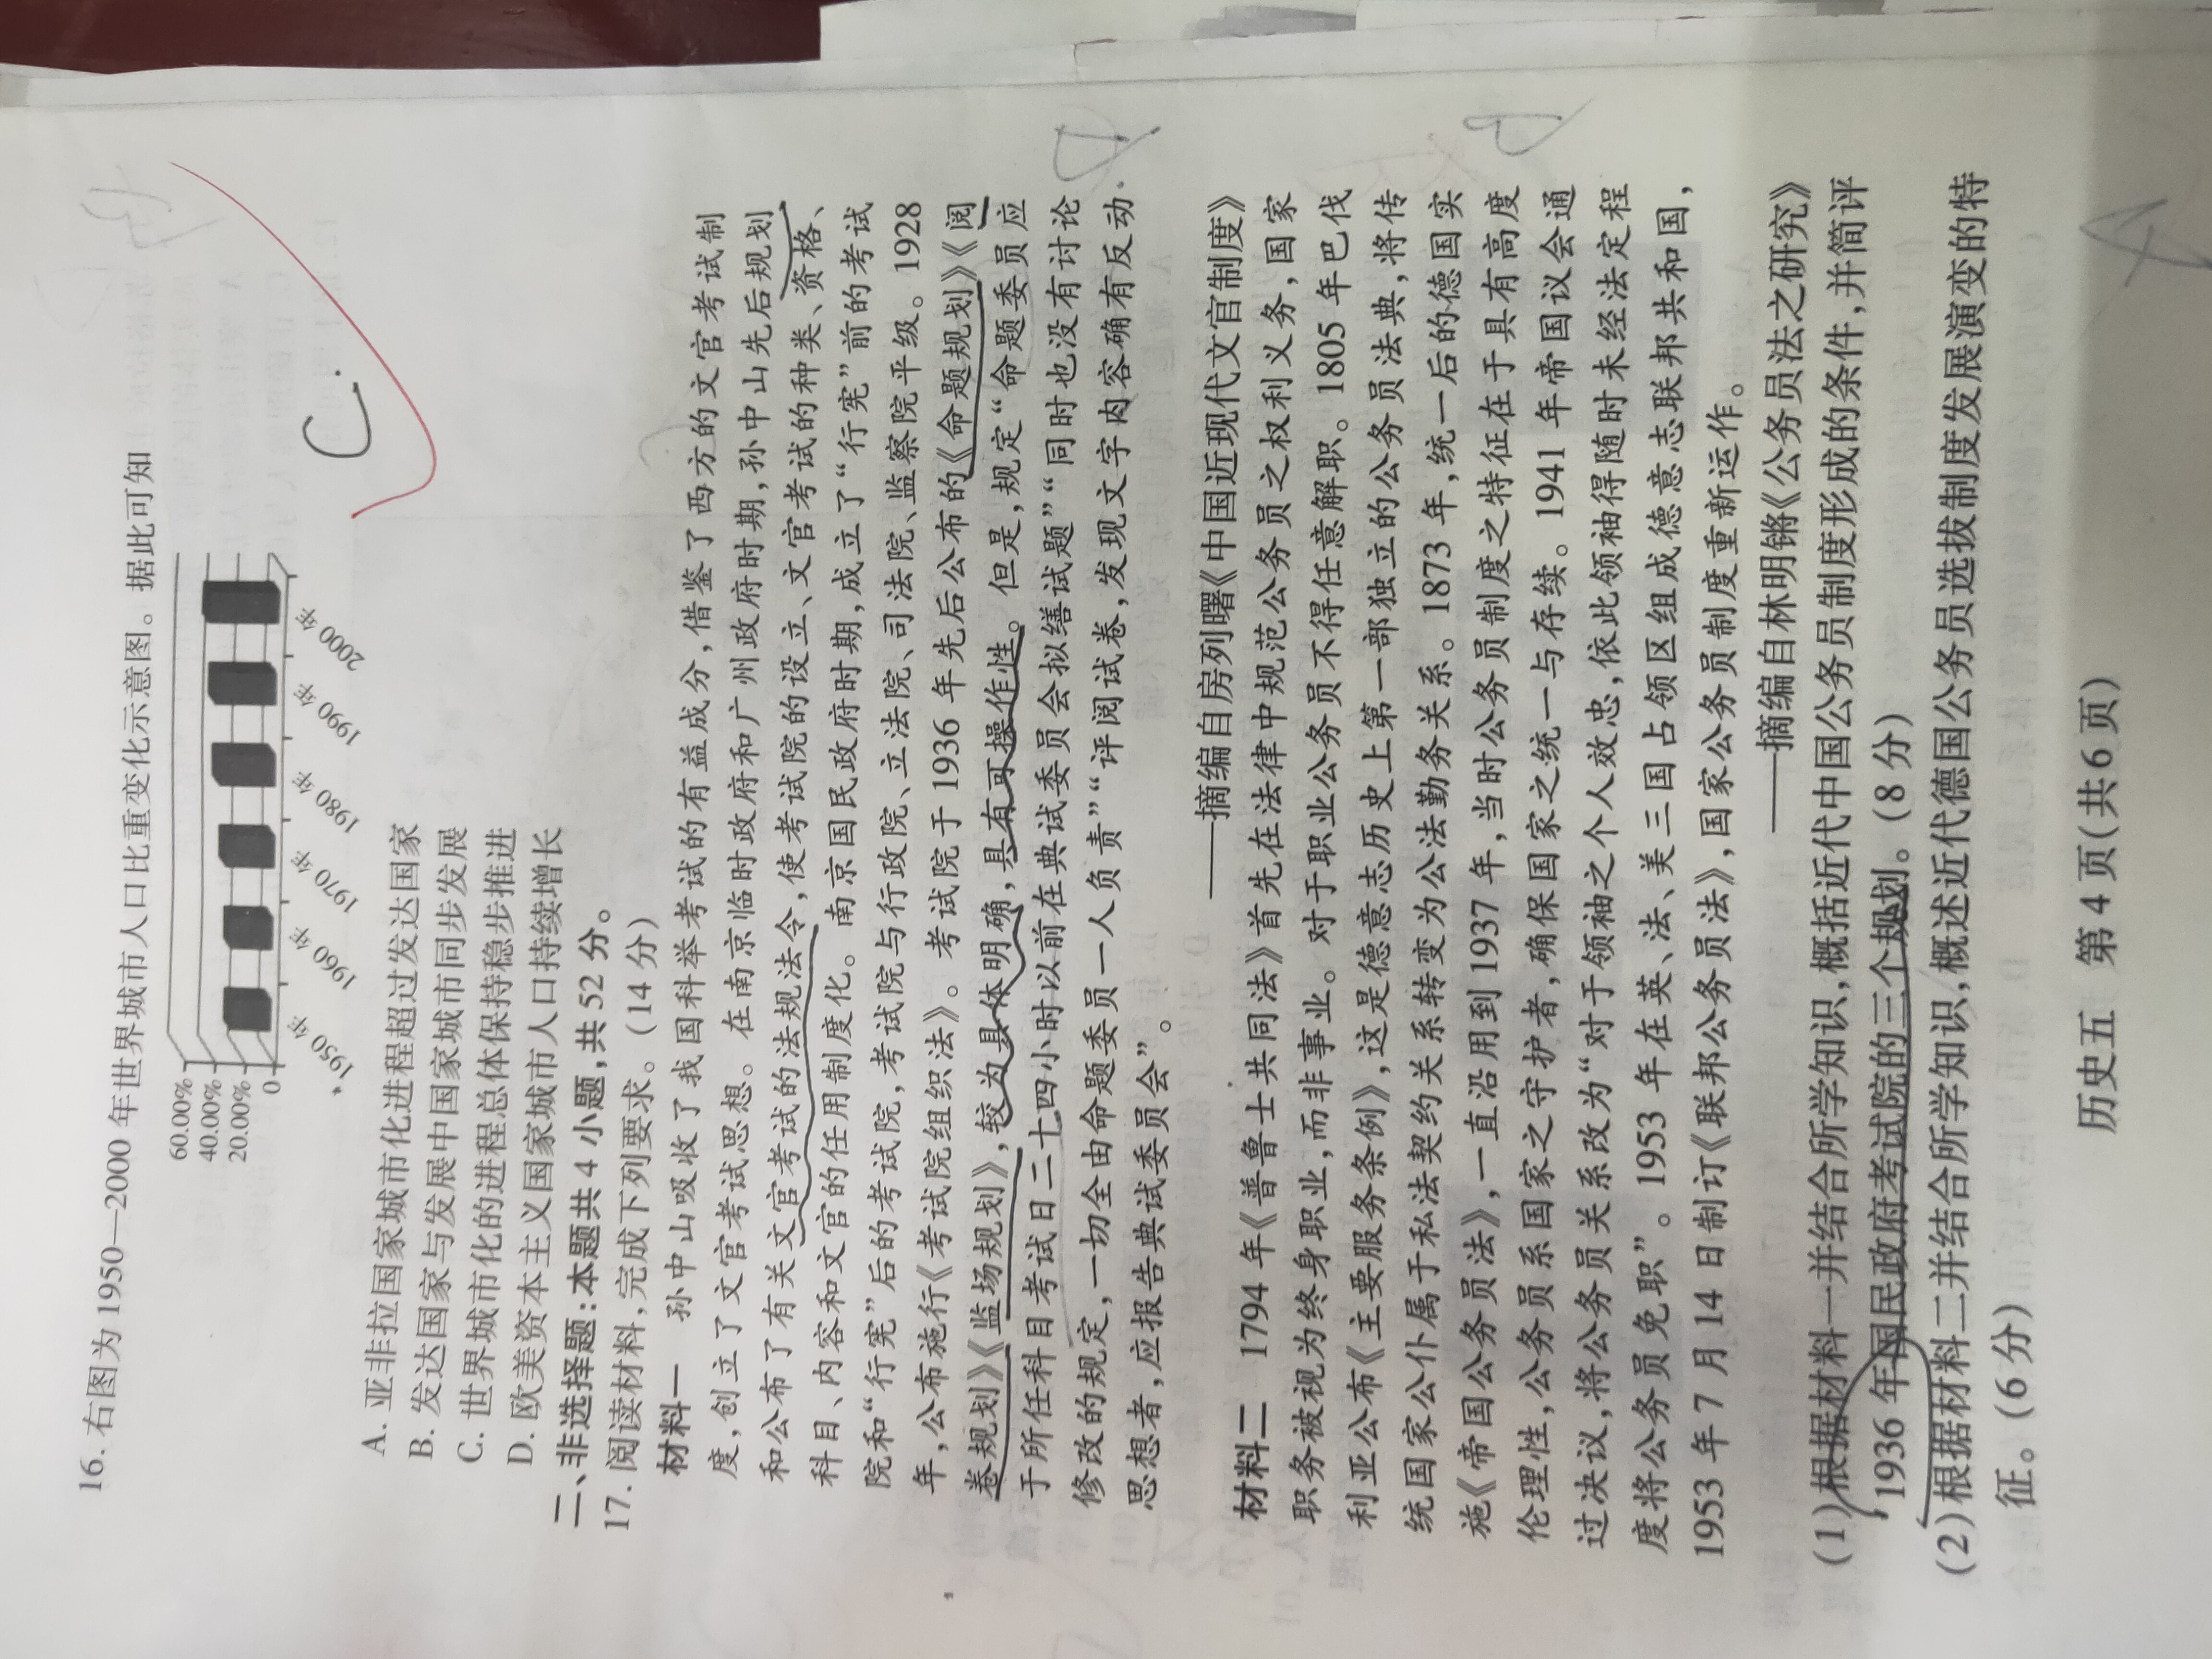 16. 右图为 1950—2000 年世界城市人口比重变化示意图。据此可知
60.00%
40.00%
20.00%
0
1950年
1960年
1970年
1980年
1990年
2000年
C.
A. 亚非拉国家城市化进程超过发达国家
B. 发达国家与发展中国家城市同步发展
C. 世界城市化的进程总体保持稳步推进
D. 欧美资本主义国家城市人口持续增长
二、非选择题:本题共 4 小题,共 52 分。
17. 阅读材料,完成下列要求。(14 分)
材料一 孙中山吸收了我国科举考试的有益成分,借鉴了西方的文官考试制
度,创立了文官考试思想。在南京临时政府和广州政府时期,孙中山先后规划
和公布了有关文官考试的法规法令,使考试院的设立、文官考试的种类、资格、
科目、内容和文官的任用制度化。南京国民政府时期,成立了“行宪”前的考试
院和“行宪”后的考试院,考试院与行政院、立法院、司法院、监察院平级。1928
年,公布施行《考试院组织法》。考试院于 1936 年先后公布的《命题规划》《阅
卷规划》《监场规划》,较为具体明确,具有可操作性。但是,规定“命题委员应
于所任科目考试日二十四小时以前在典试委员会拟缮试题”“同时也没有讨论
修改的规定,一切全由命题委员一人负责”“评阅试卷,发现文字内容确有反动
思想者,应报告典试委员会”。
——摘编自房列曙《中国近现代文官制度》
材料二 1794 年《普鲁士共同法》首先在法律中规范公务员之权利义务,国家
职务被视为终身职业,而非事业。对于职业公务员不得任意解职。1805 年巴伐
利亚公布《主要服务条例》,这是德意志历史上第一部独立的公务员法典,将传
统国家公仆属于私法契约关系转变为公法勤务关系。1873 年,统一后的德国实
施《帝国公务员法》,一直沿用到 1937 年,当时公务员制度之特征在于具有高度
伦理性,公务员系国家之守护者,确保国家之统一与存续。1941 年帝国议会通
过决议,将公务员关系改为“对于领袖之个人效忠,依此领袖得随时未经法定程
度将公务员免职”。1953 年在英、法、美三国占领区组成德意志联邦共和国,
1953 年 7 月 14 日制订《联邦公务员法》,国家公务员制度重新运作。
——摘编自林明锵《公务员法之研究》
(1)根据材料一并结合所学知识,概括近代中国公务员制度形成的条件,并简评
1936 年国民政府考试院的三个规划。(8 分)
(2)根据材料二并结合所学知识,概述近代德国公务员选拔制度发展演变的特
征。(6 分)
历史五 第 4 页(共 6 页)